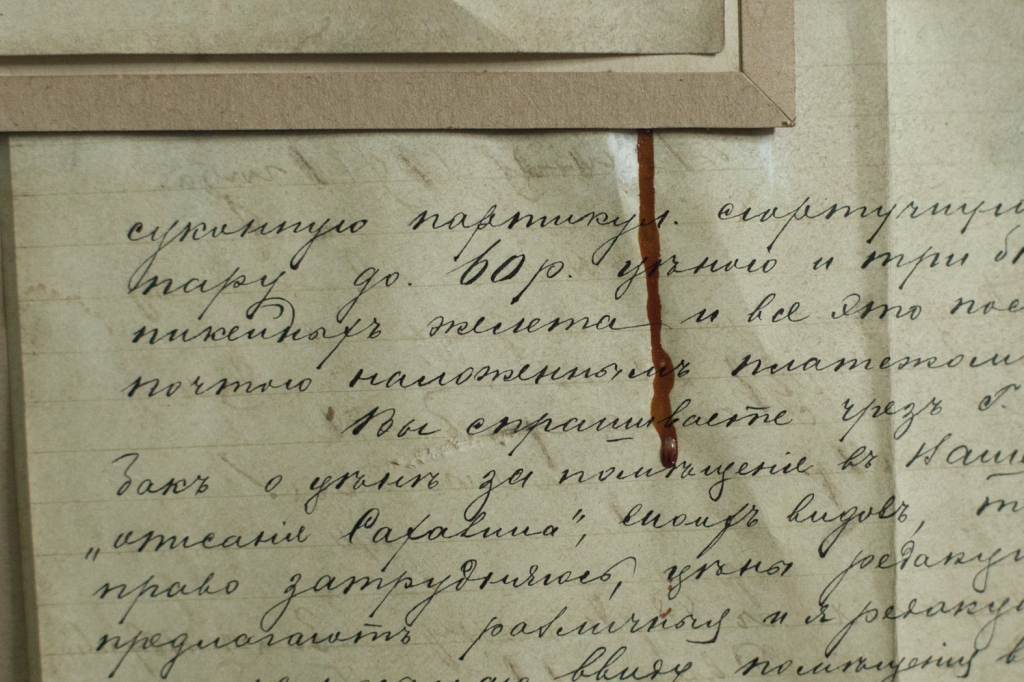 суконную партикул. сюртучную
пару до. 60 р. цѣною и три
пикейныхъ жилета и все это
почтою наложеннымъ платежом
Вы спрашиваете чрезъ Г.
Закъ о цѣнѣ за помѣщеніе въ Наши
„описанія Сахалина", своихъ видовъ,
право затрудняюсь, цѣны
предлагаютъ различныя и я
ввиду помѣщенія